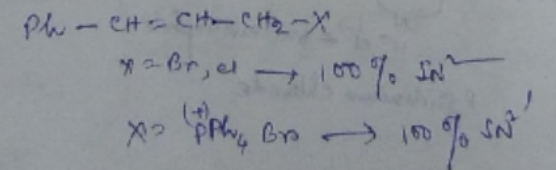 Ph - CH = CH - CH2 - X
X = Br, Cl → 100% SN2
X = (+)PPh4 Br → 100% SN2'